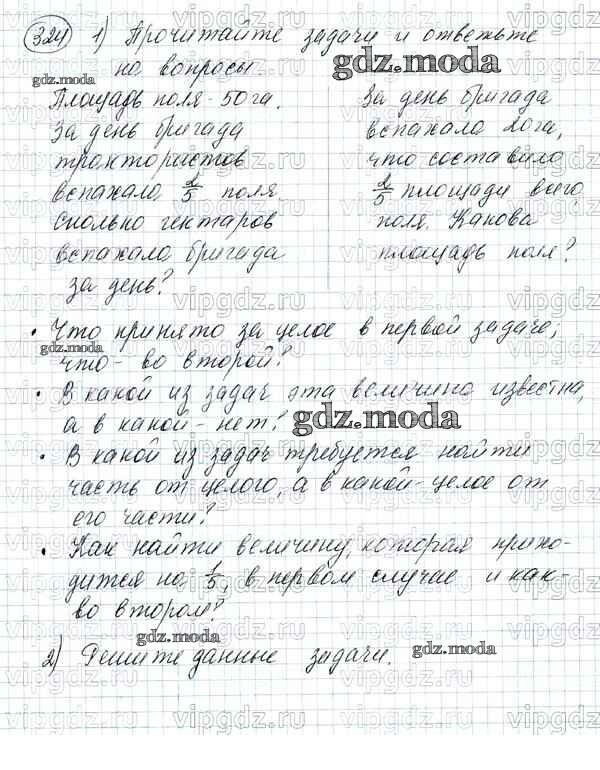 324 1) Прочитайте задачи и ответьте
на вопросы.
Площадь поля - 50 га.
За день бригада
трактористов
вспахала 2/5 поля.
Сколько гектаров
вспахала бригада
за день?
За день бригада
вспахала 20 га,
что составило
2/5 площади всего
поля. Какова
площадь поля?
• Что принято за целое в первой задаче,
что - во второй?
• В какой из задач эта величина известна,
а в какой - нет?
• В какой из задач требуется найти
часть от целого, а в какой - целое от
его части?
• Как найти величину, которая прихо-
дится на 1/5, в первом случае и как -
во втором?
2) Решите данные задачи.
gdz.moda
gdz.moda
gdz.moda
gdz.moda
gdz.moda
gdz.moda
gdz.moda
vipgdz.ru